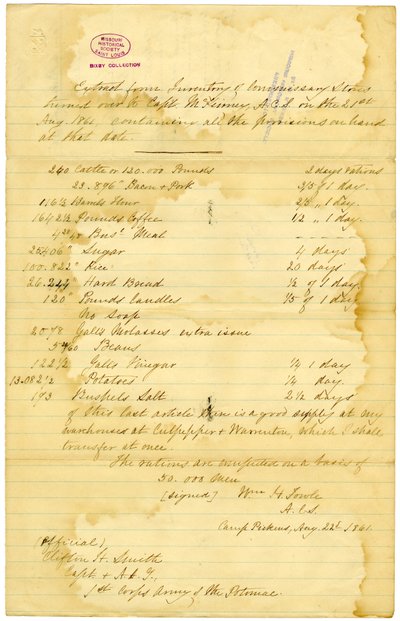 MISSOURI
HISTORICAL
SOCIETY
SAINT LOUIS
BIXBY COLLECTION
Extract from Inventory of Commissary Stores
turned over to Capt McTierney, A.C.S. on the 21st
Aug. 1861, containing all the provisions on hand
at that date.
240 Cattle or 120.000 Pounds 2 days rations
23.896 " Bacon & Pork 2/3 of 1 day.
116½ Barrels Flour 2/3 " 1 day.
1642½ Pounds Coffee 1/2 " 1 day.
Bus' Meal
25406 " Sugar 4 days
100.822 " Rice 20 days
26.244 " Hard Bread ½ of 1 day.
120 " Pounds Candles 1/5 of 1 day
No Soap
2078 Galls Molasses extra issue
5760 Beans
122½ Galls Vinegar ¼ 1 day
13.082½ Potatoes ¼ day.
193 Bushels Salt 2½ days
of this last article there is a good supply at my
warehouses at Culpepper & Warrenton, which I shall
transfer at once.
The rations are computed on a basis of
30.000 men
[signed] Wm H Fowle
A.C.S.
Camp Pickens, Aug. 22d 1861.
(Official)
Clifton H. Smith
Capt & A.A.G.,
1st Corps Army of the Potomac.